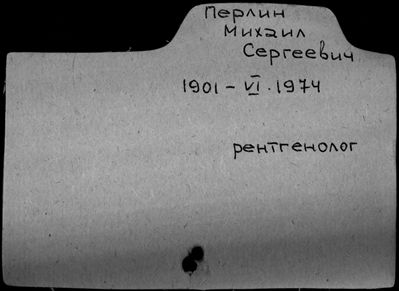 Перлин
Михаил
Сергеевич
1901 – VI.1974
рентгенолог